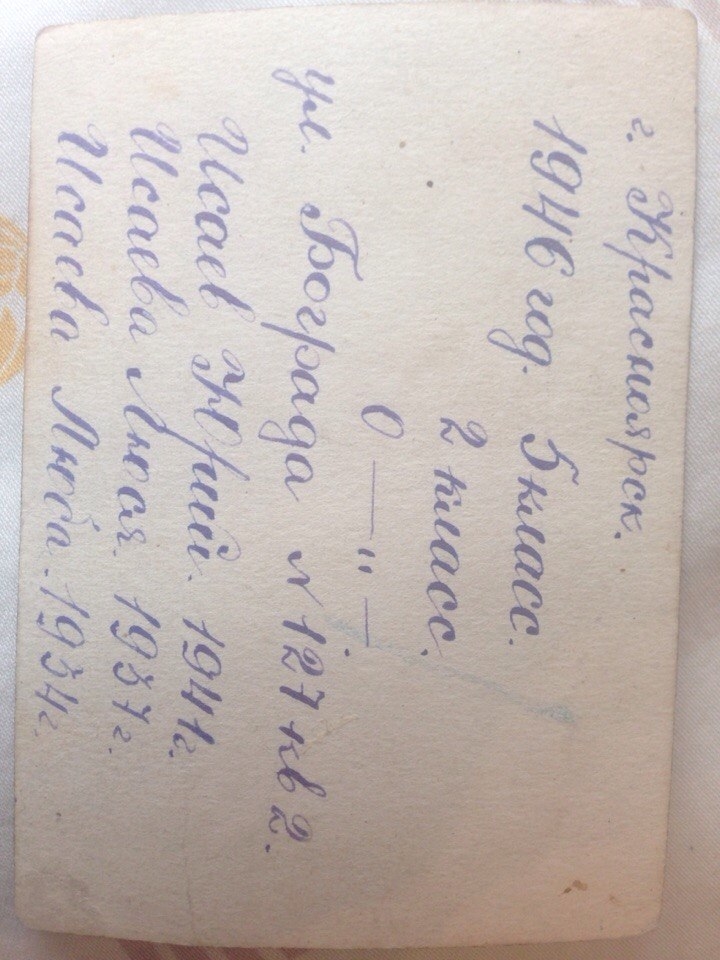 г. Красноярск.
1946 год. 5 класс.
2 класс.
0 — " —
ул. Бограда N 127 кв 2.
Исаев Юрий. 1941г.
Исаева Люся. 1937г.
Исаева Люба. 1934г.